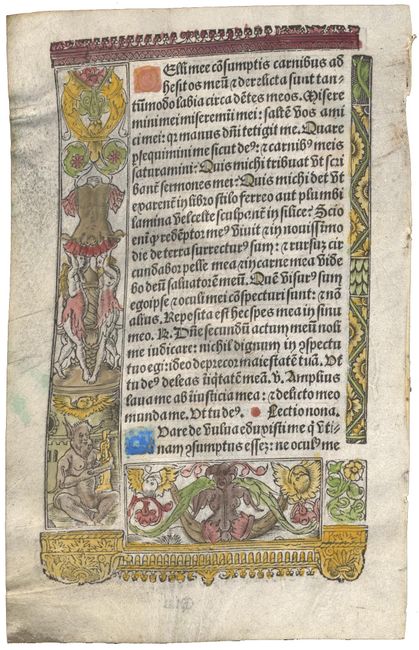 Elli mee cōsumptis carnibus ad
hesit os meū ⁊ derelicta sunt tan-
tūmodo labia circa dētes meos. Misere
mini mei miseremini mei: saltē vos ami
ci mei: qꝛ manus dn̄i tetigit me. Quare
ꝑsequimini me sicut deꝰ: ⁊ carnibꝰ meis
saturamini? Quis michi tribuat vt scri
banť sermones mei? Quis michi det vt
exarenť in libro stilo ferreo aut plumbi
lamina vel celte sculpanť in silice? Scio
eni ꝙ redēptor meꝰ viuit ⁊ in nouissimo
die de terra surrecturꝰ sum: ⁊ rursuꝫ cir
cundabor pelle mea ⁊ in carne mea vide
bo deū saluatorē meū. Quē visurꝰ sum
ego ipse ⁊ oculi mei cōspecturi sunt: ⁊ nō
alius. Reposita est hec spes mea in sinu
meo. ℟. Dn̄e secundū actum meū noli
me iudicare: nichil dignum in ꝯspectu
tuo egi: ideo deprecor maiestatē tuā. Vt
tu deꝰ deleas iīqtatē meā. v. Amplius
laua me ab iusticia mea: ⁊ a delicto meo
munda me. Vt tu deꝰ. Lectio nona.
Quare de vulua eduxisti me q̄ vti-
nam ꝯsumptus essez: ne oculꝰ me